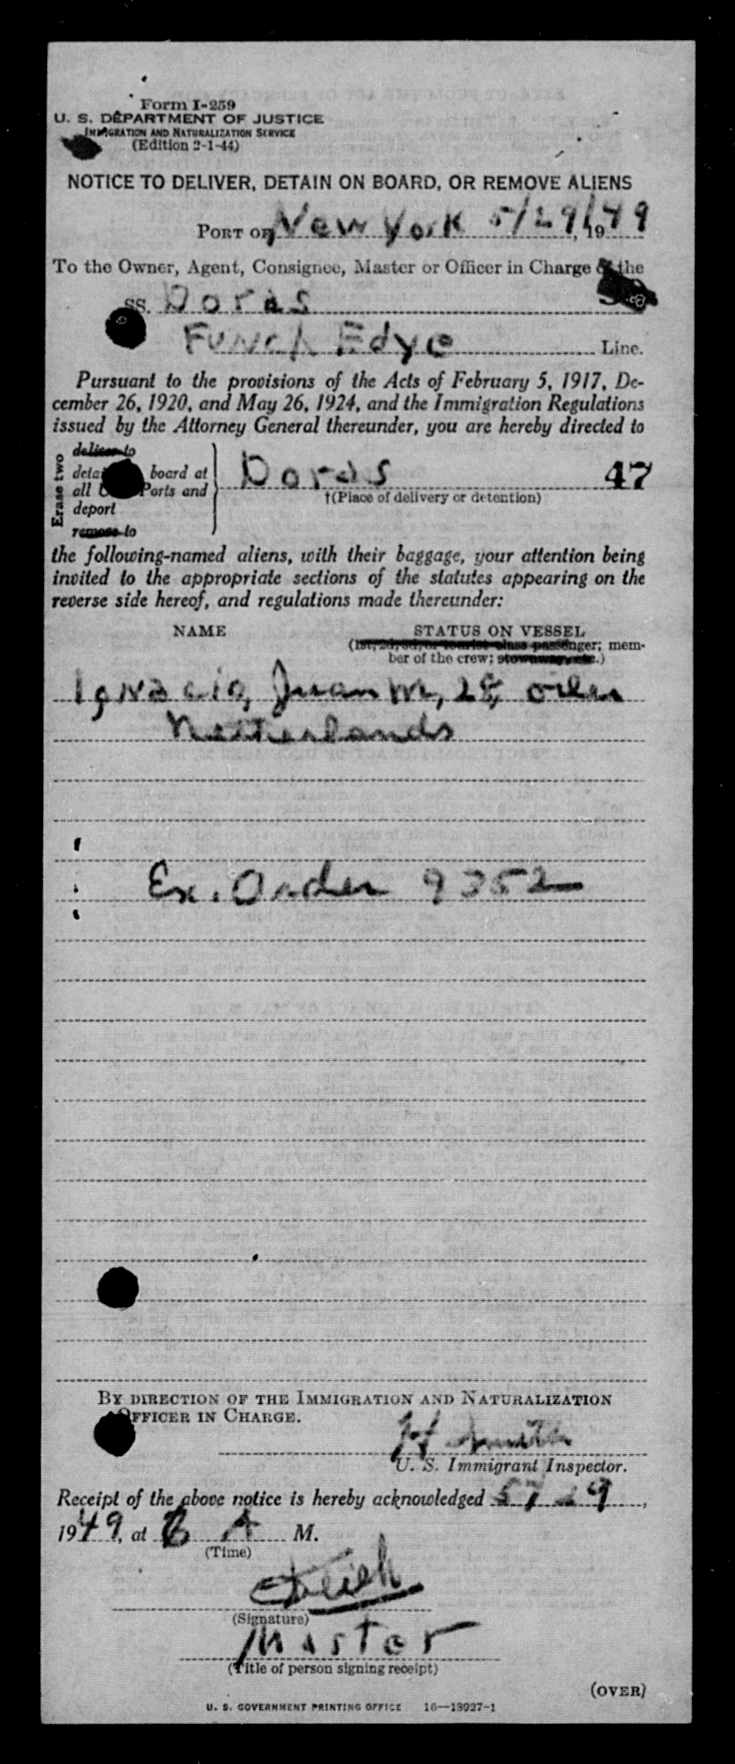 Form I-259
U. S. DEPARTMENT OF JUSTICE
IMMIGRATION AND NATURALIZATION SERVICE
(Edition 2-1-44)
NOTICE TO DELIVER, DETAIN ON BOARD, OR REMOVE ALIENS
PORT OF New York 5/29, 1949
To the Owner, Agent, Consignee, Master or Officer in Charge of the
SS. Doras
Funch Edye Line.
Pursuant to the provisions of the Acts of February 5, 1917, De-
cember 26, 1920, and May 26, 1924, and the Immigration Regulations
issued by the Attorney General thereunder, you are hereby directed to
Erase two
deliver to
board at Doras 47
all Ports and †(Place of delivery or detention)
deport
remove to
the following-named aliens, with their baggage, your attention being
invited to the appropriate sections of the statutes appearing on the
reverse side hereof, and regulations made thereunder:
NAME STATUS ON VESSEL
(1st, 2d, 3d, or tourist class passenger; mem-
ber of the crew; stowaway, etc.)
Ignacio, Juan M, 28, oiler
Netherlands
Ex. Order 9352
BY DIRECTION OF THE IMMIGRATION AND NATURALIZATION
OFFICER IN CHARGE.
Smith
U. S. Immigrant Inspector.
Receipt of the above notice is hereby acknowledged 5/29,
1949, at 8 A M.
(Time)
(Signature)
Master
(Title of person signing receipt)
(OVER)
U. S. GOVERNMENT PRINTING OFFICE 16—13927-1